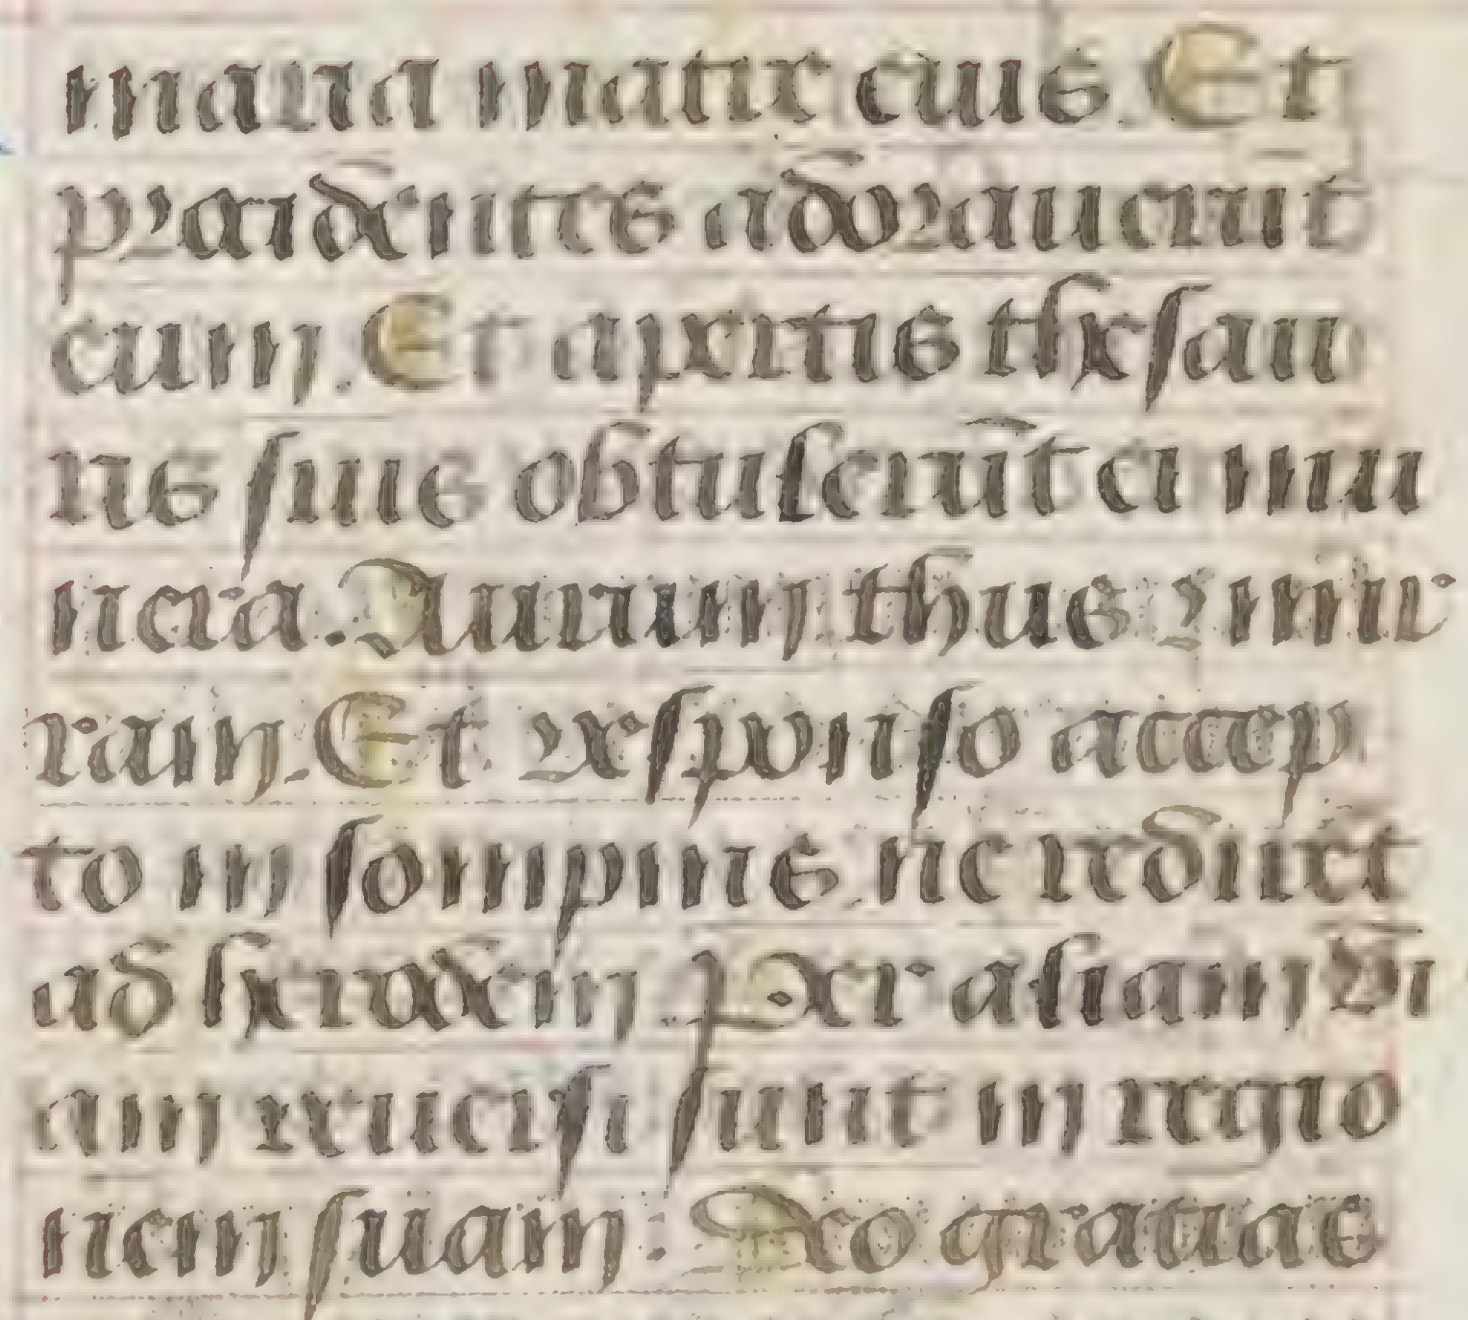 maria matre eius. Et
procidentes adorauerūt
eum. Et apertis thesau
ris suis obtulerūt ei mu
nera. Aurum thus ⁊ mir
ram. Et responso accep
to in sompnis ne redirēt
ad herodem per aliam vi
am reuersi sunt in regio
nem suam: Deo gratias